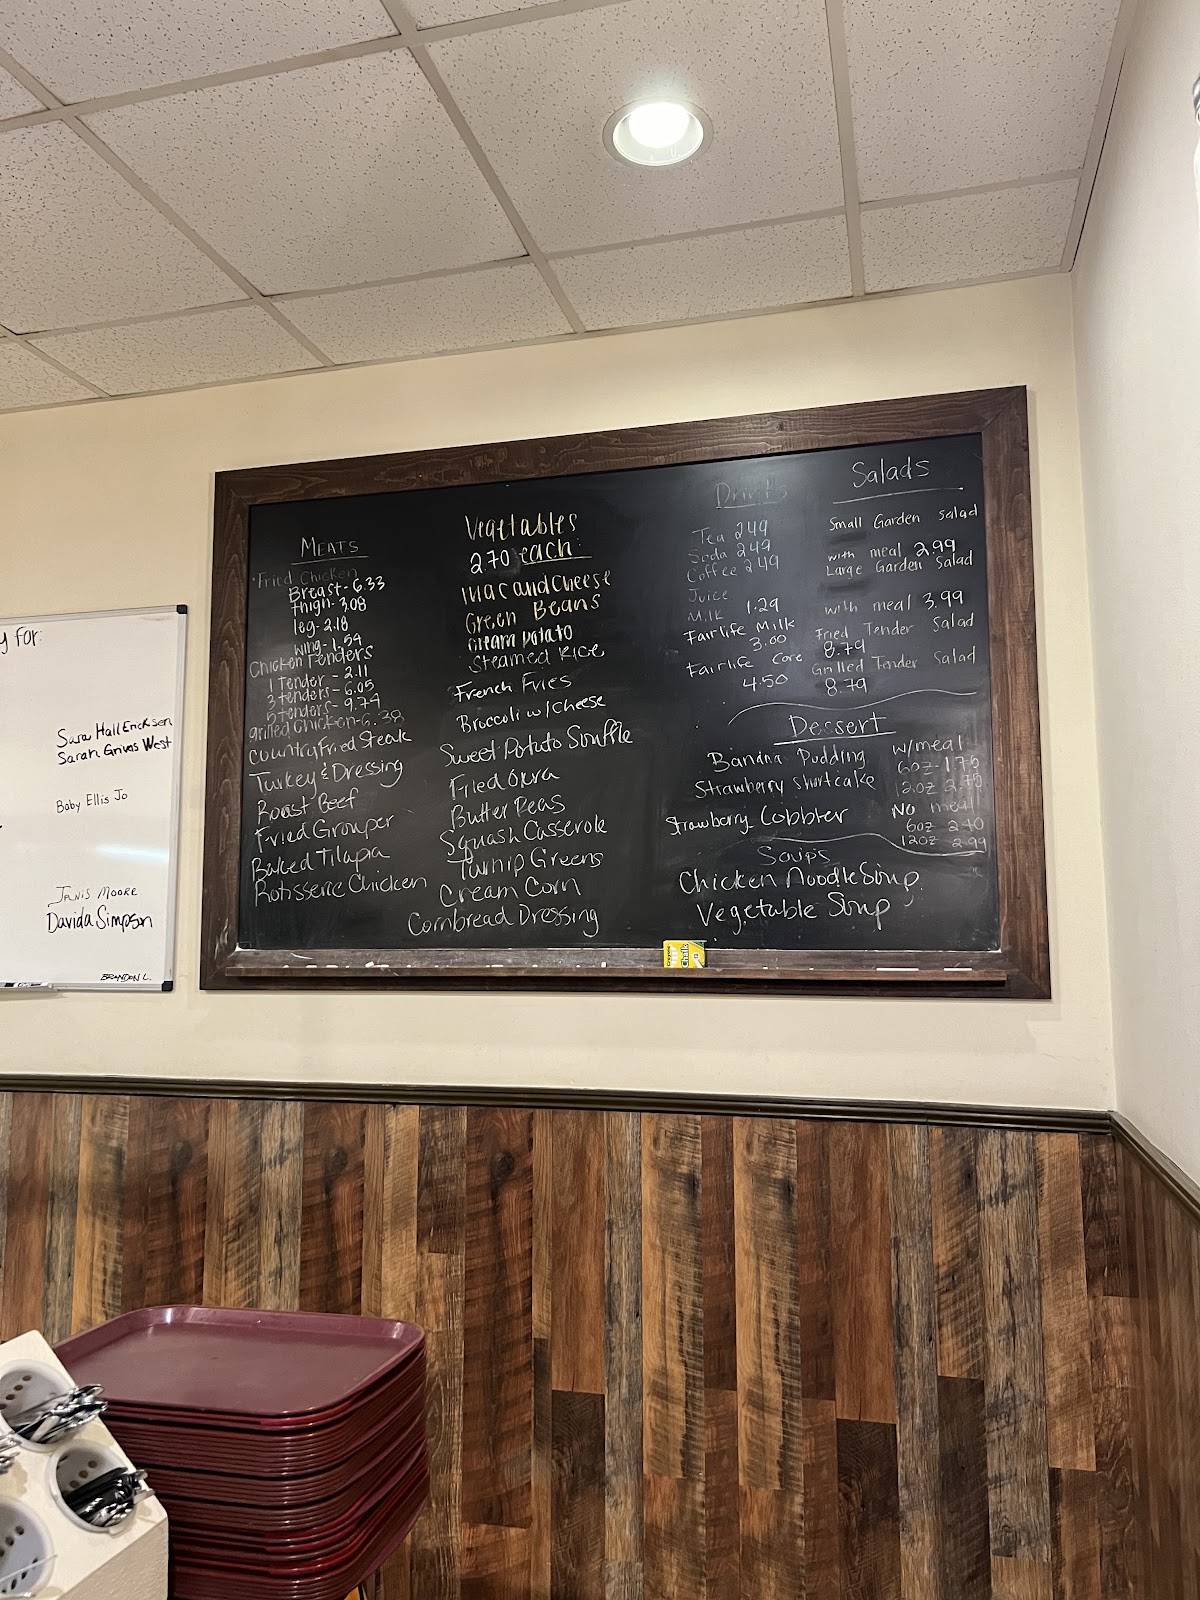 y for:
Sara Hall Ericksen
Sarah Grivas West
Baby Ellis Jo
Janis Moore
Davida Simpson
BRANDON L.
MEATS
Fried Chicken
Breast - 6.33
Thigh - 3.08
leg - 2.18
wing - 1.54
Chicken Tenders
1 Tender - 2.11
3 tenders - 6.05
5 tenders - 9.74
grilled chicken - 6.38
Country Fried Steak
Turkey & Dressing
Roast Beef
Fried Grouper
Baked Tilapia
Rotisserie Chicken
Vegetables
2.70 each
Mac and Cheese
Green Beans
Cream Potato
Steamed Rice
French Fries
Broccoli w/ Cheese
Sweet Potato Souffle
Fried Okra
Butter Peas
Squash Casserole
Turnip Greens
Cream Corn
Cornbread Dressing
Drinks
Tea 2.49
Soda 2.49
Coffee 2.49
Juice
Milk 1.29
Fairlife Milk
3.00
Fairlife Core
4.50
Salads
Small Garden Salad
with meal 2.99
Large Garden Salad
with meal 3.99
Fried Tender Salad
8.79
Grilled Tender Salad
8.79
Dessert
Banana Pudding
Strawberry Shortcake
Strawberry Cobbler
w/meal
6oz - 1.75
12oz 2.75
No meal
6oz 2.40
12oz 2.99
Soup's
Chicken Noodle Soup
Vegetable Soup
Crayola
Chalk